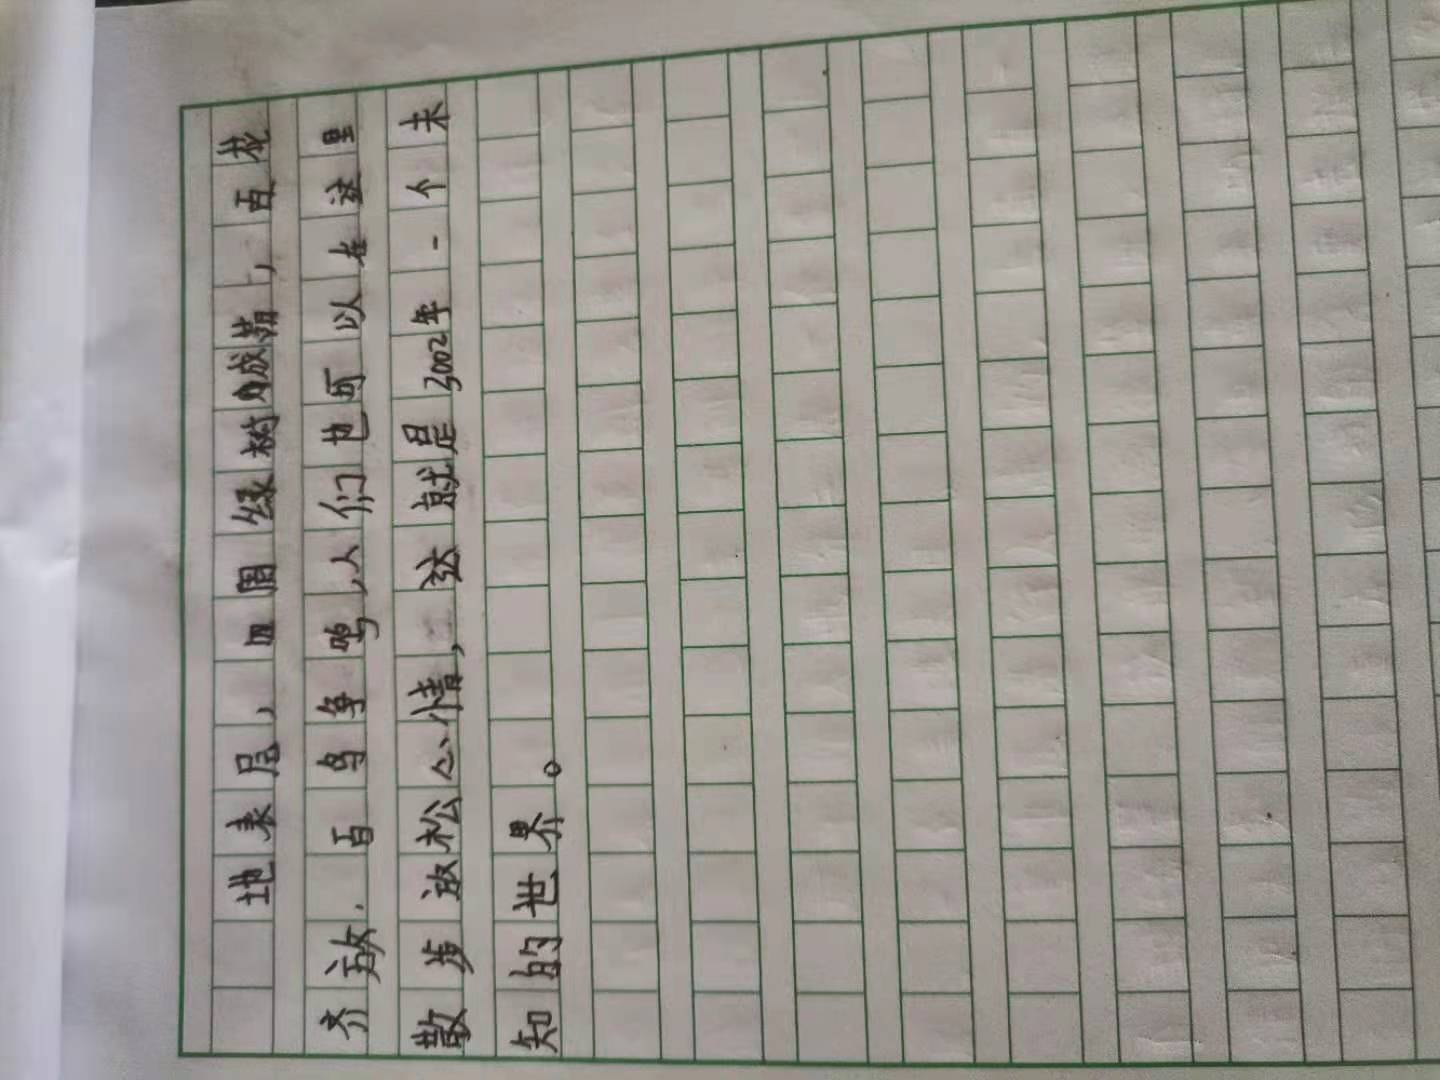 地表层，四周绿树成荫，百花
齐放．百鸟争鸣，人们也可以在这里
散步放松心情，这就是3002年一个未
知的世界。